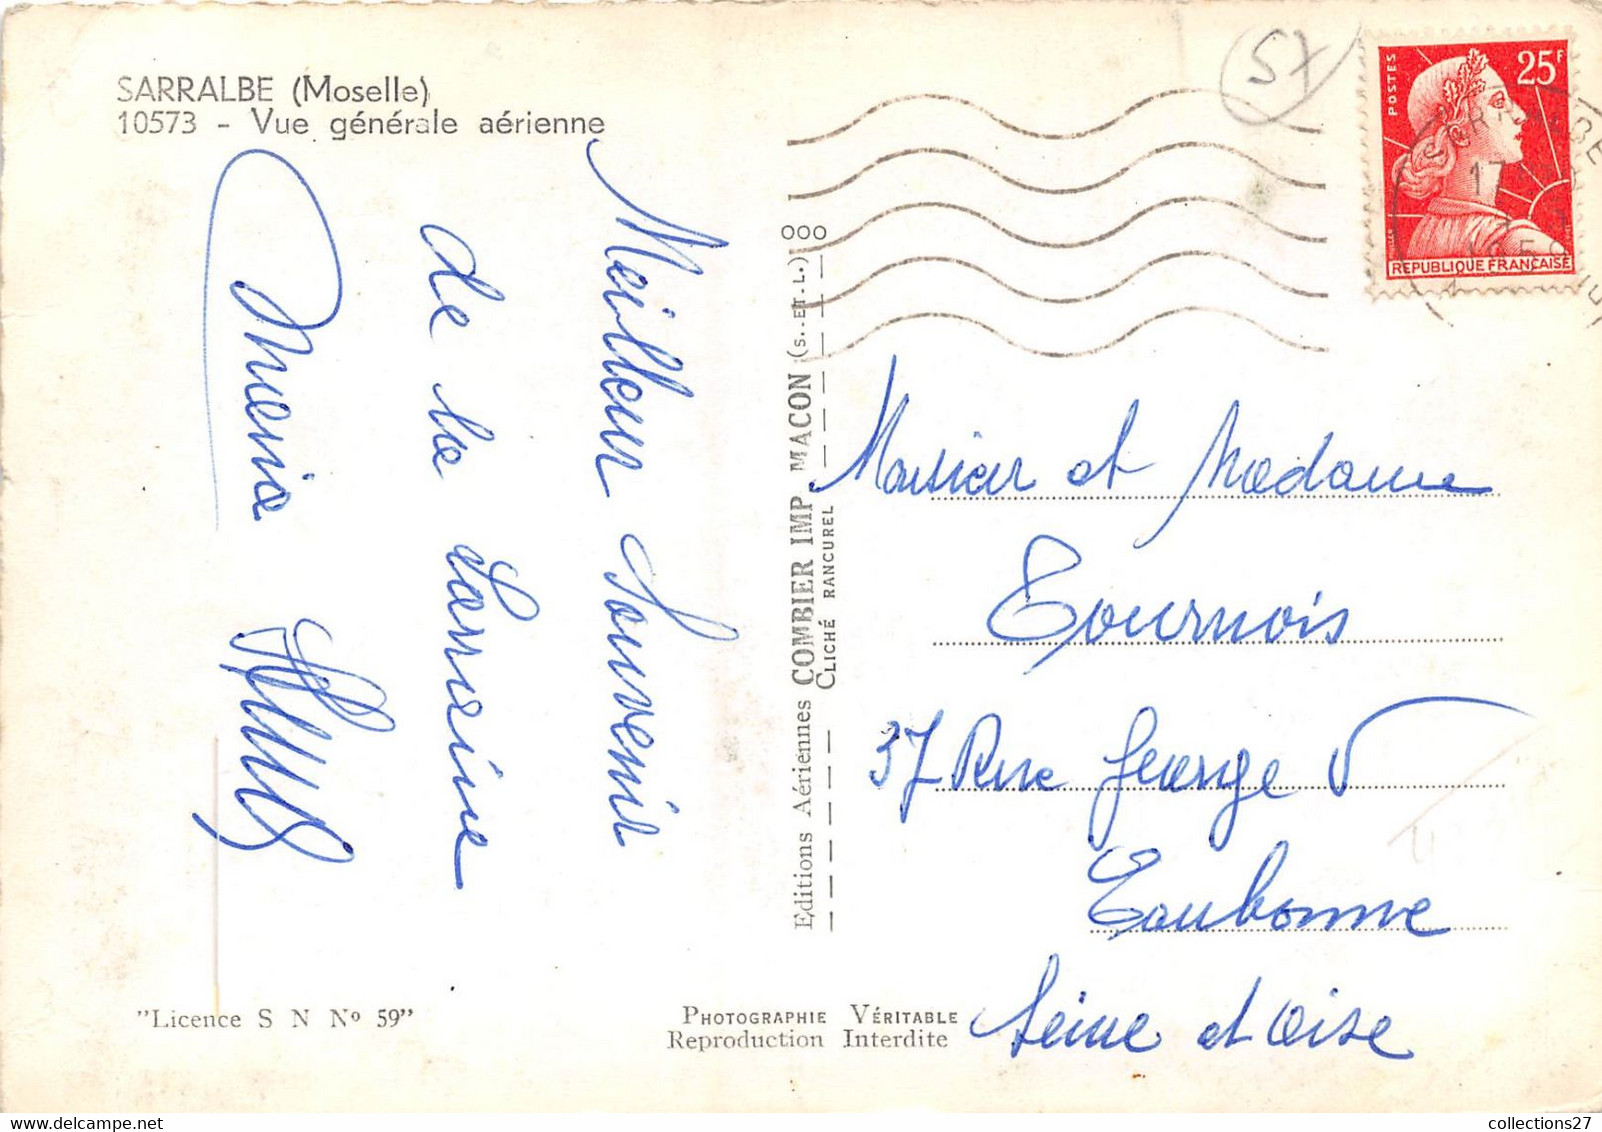 SARRALBE (Moselle)
10573 - Vue générale aérienne
Meilleur Souvenir
de la Lorraine
Maria
57
POSTES
25F
RÉPUBLIQUE FRANÇAISE
SARRALBE
17
MOSELLE
000
Editions Aériennes COMBIER IMP MACON (S.-ET-L.)
CLICHÉ RANCUREL
Monsieur et Madame
Tournois
37 Rue George V
Eaubonne
Seine et Oise
"Licence S N Nº 59"
PHOTOGRAPHIE VÉRITABLE
Reproduction Interdite
collections27